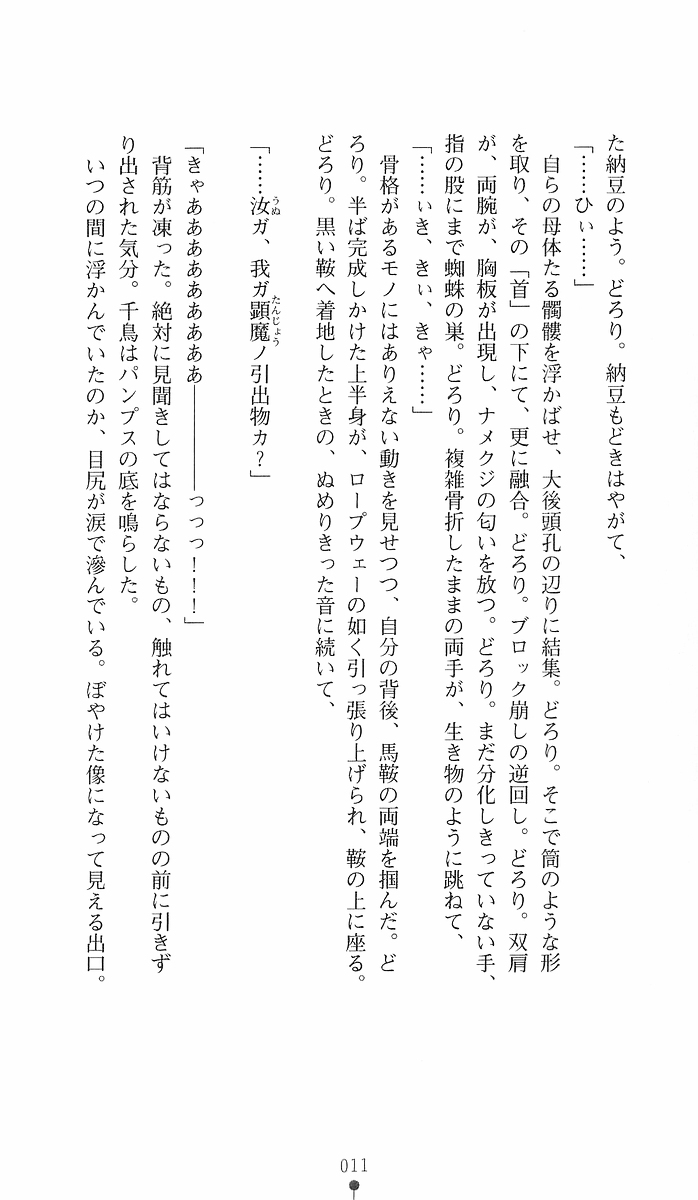 た納豆のよう。どろり。納豆もどきはやがて、
「……ひぃ……」
自らの母体たる髑髏を浮かばせ、大後頭孔の辺りに結集。どろり。そこで筒のような形
を取り、その「首」の下にて、更に融合。どろり。ブロック崩しの逆回し。どろり。双肩
が、両腕が、胸板が出現し、ナメクジの匂いを放つ。どろり。まだ分化しきっていない手、
指の股にまで蜘蛛の巣。どろり。複雑骨折したままの両手が、生き物のように跳ねて、
「……ぃき、きぃ、きゃ……」
骨格があるモノにはありえない動きを見せつつ、自分の背後、馬鞍の両端を掴んだ。ど
ろり。半ば完成しかけた上半身が、ロープウェーの如く引っ張り上げられ、鞍の上に座る。
どろり。黒い鞍へ着地したときの、ぬめりきった音に続いて、
「……汝ガ、我ガ顕魔ノ引出物カ？」
うぬ
たんじょう
「きゃあああああああああ――――っっっ！！！」
背筋が凍った。絶対に見聞きしてはならないもの、触れてはいけないものの前に引きず
り出された気分。千鳥はパンプスの底を鳴らした。
いつの間に浮かんでいたのか、目尻が涙で滲んでいる。ぼやけた像になって見える出口。
011